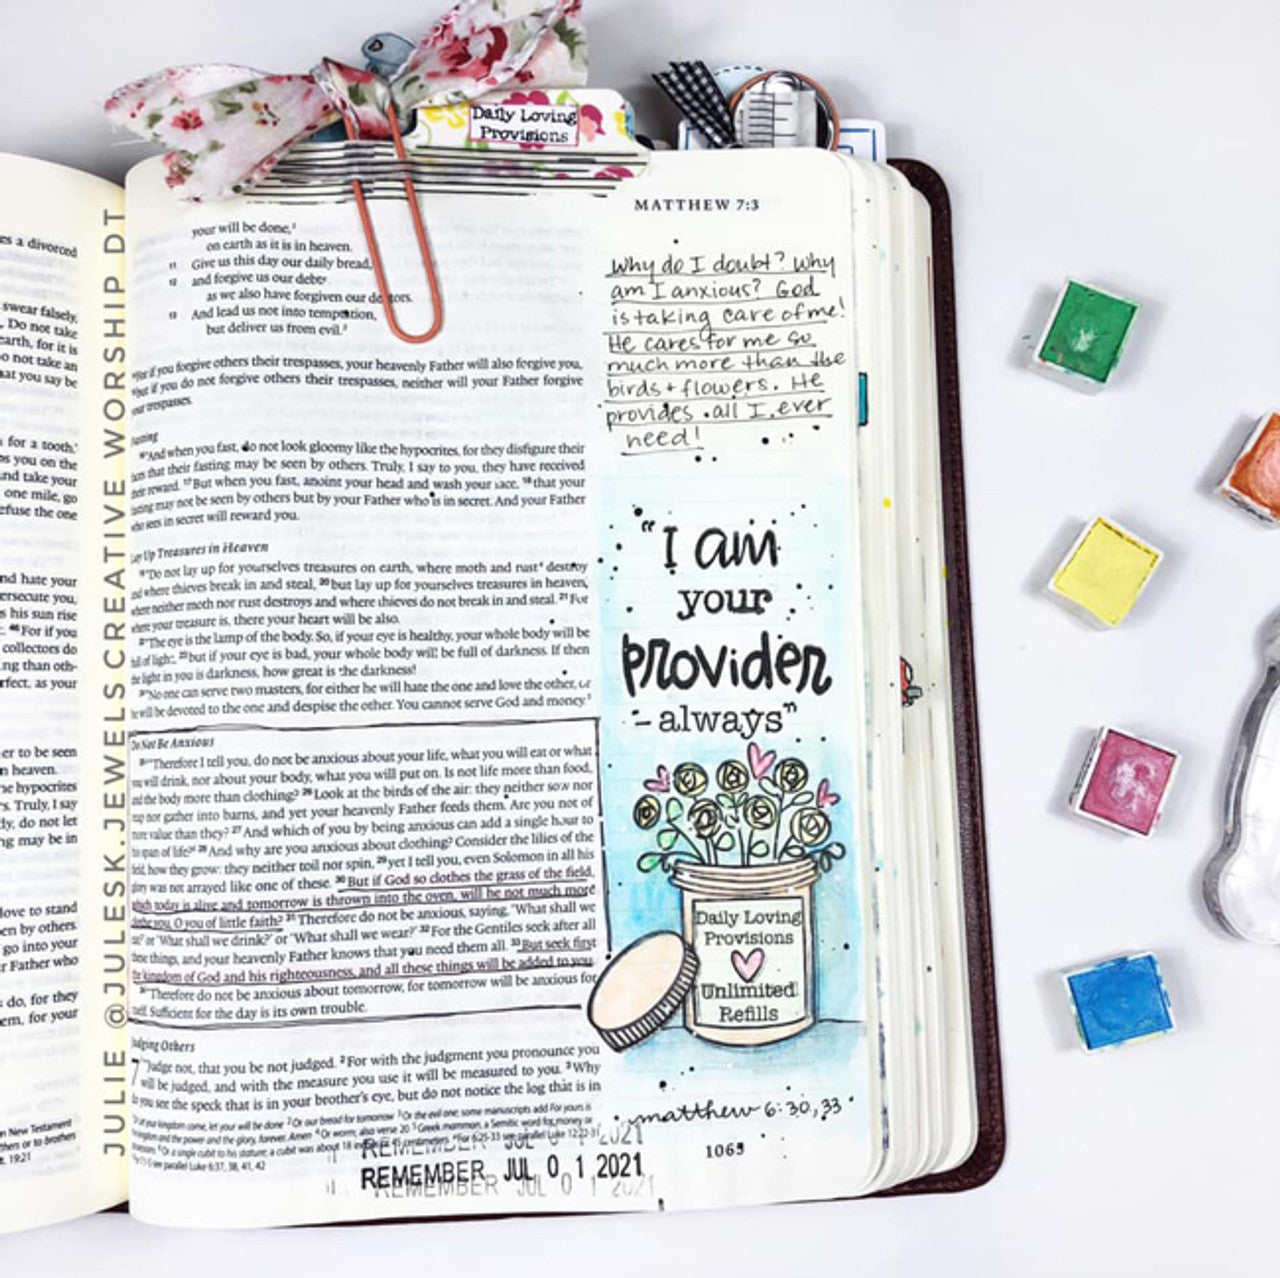 Daily Loving
Provisions
MATTHEW 7:3
your will be done,
on earth as it is in heaven.
11 Give us this day our daily bread,
12 and forgive us our
as we also have forgiven our
13 And lead us not into temptation,
but deliver us from evil.
if you forgive others their trespasses, your heavenly Father will also forgive you,
if you do not forgive others their trespasses, neither will your Father forgive
trespasses.
And when you fast, do not look gloomy like the hypocrites, for they disfigure their
that their fasting may be seen by others. Truly, I say to you, they have received
reward. 17 But when you fast, anoint your head and wash your face, 18 that your
fasting may not be seen by others but by your Father who is in secret. And your Father
who sees in secret will reward you.
Lay Up Treasures in Heaven
"Do not lay up for yourselves treasures on earth, where moth and rust destroy
and where thieves break in and steal, 20 but lay up for yourselves treasures in heaven,
where neither moth nor rust destroys and where thieves do not break in and steal. 21 For
where your treasure is, there your heart will be also.
"The eye is the lamp of the body. So, if your eye is healthy, your whole body will be
full of light, 23 but if your eye is bad, your whole body will be full of darkness. If then
the light in you is darkness, how great is the darkness!
"No one can serve two masters, for either he will hate the one and love the other, or
he will be devoted to the one and despise the other. You cannot serve God and money.
Do Not Be Anxious
"Therefore I tell you, do not be anxious about your life, what you will eat or what
you will drink, nor about your body, what you will put on. Is not life more than food,
and the body more than clothing? 26 Look at the birds of the air: they neither sow nor
reap nor gather into barns, and yet your heavenly Father feeds them. Are you not of
more value than they? 27 And which of you by being anxious can add a single hour to
his span of life? 28 And why are you anxious about clothing? Consider the lilies of the
field, how they grow: they neither toil nor spin, 29 yet I tell you, even Solomon in all his
glory was not arrayed like one of these. 30 But if God so clothes the grass of the field,
which today is alive and tomorrow is thrown into the oven, will he not much more
clothe you, O you of little faith? 31 Therefore do not be anxious, saying, 'What shall we
eat?' or 'What shall we drink?' or 'What shall we wear?' 32 For the Gentiles seek after all
these things, and your heavenly Father knows that you need them all. 33 But seek first
the kingdom of God and his righteousness, and all these things will be added to you.
"Therefore do not be anxious about tomorrow, for tomorrow will be anxious for
itself. Sufficient for the day is its own trouble.
Judging Others
7 "Judge not, that you be not judged. 2 For with the judgment you pronounce you
will be judged, and with the measure you use it will be measured to you. 3 Why
do you see the speck that is in your brother's eye, but do not notice the log that is in
REMEMBER JUL 01 2021
why do I doubt? Why
am I anxious? God
is taking care of me!
He cares for me so
much more than the
birds + flowers. He
provides all I ever
need!
"I am
your
provider
- always"
Daily Loving
Provisions
Unlimited
Refills
matthew 6:30,33
1065
JULIE @JULESK.JEWELS CREATIVE WORSHIP DT